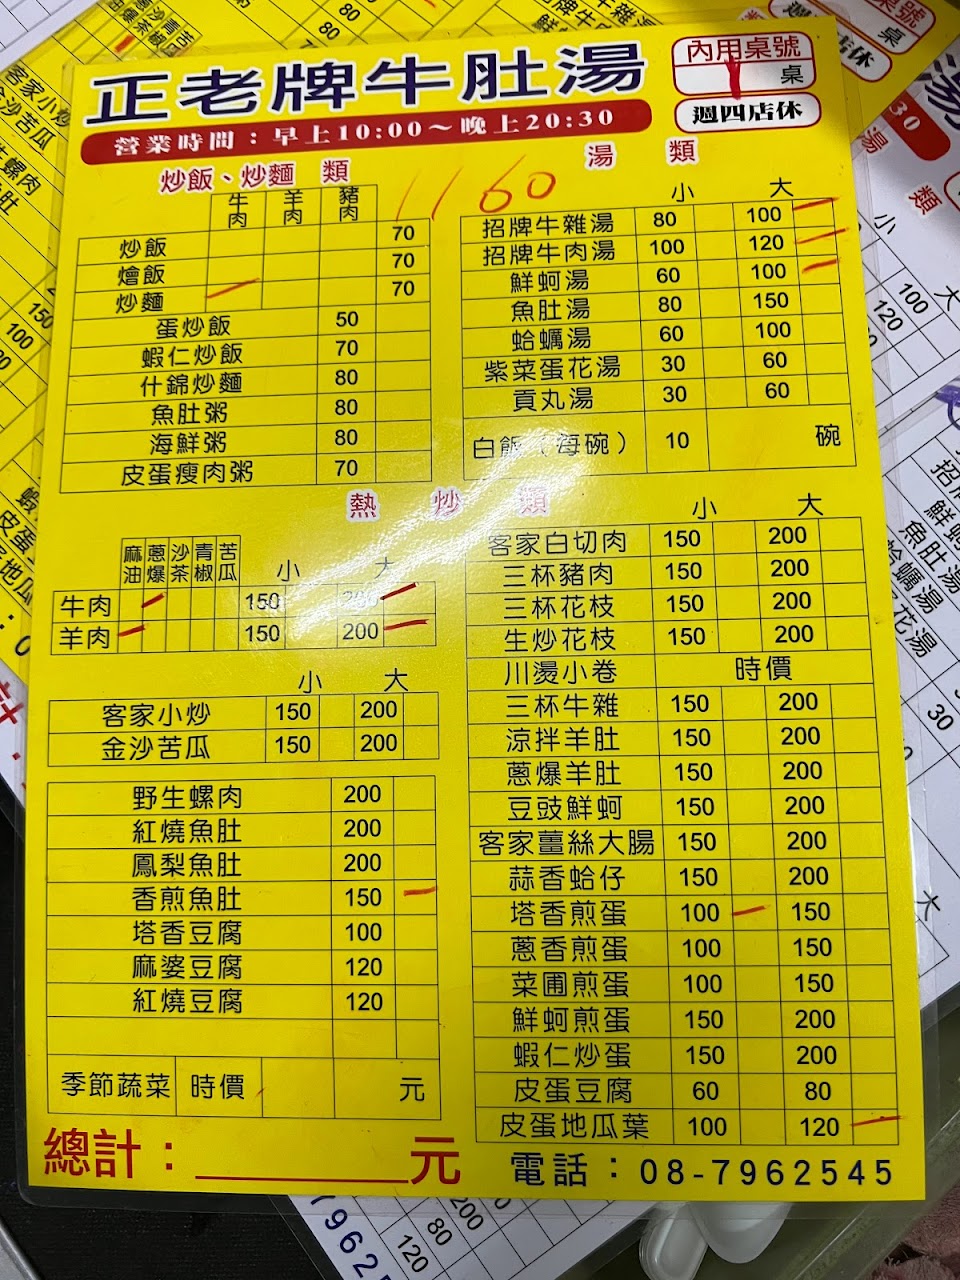 正老牌牛肚湯
內用桌號
桌
週四店休
營業時間：早上10:00～晚上20:30
1160
炒飯、炒麵 類
牛肉 羊肉 豬肉
炒飯 70
燴飯 70
炒麵 70
蛋炒飯 50
蝦仁炒飯 70
什錦炒麵 80
魚肚粥 80
海鮮粥 80
皮蛋瘦肉粥 70
湯 類
小 大
招牌牛雜湯 80 100
招牌牛肉湯 100 120
鮮蚵湯 60 100
魚肚湯 80 150
蛤蠣湯 60 100
紫菜蛋花湯 30 60
貢丸湯 30 60
白飯（每碗） 10 碗
熱 炒 類
麻油 蔥爆 沙茶 青椒 苦瓜 小 大
牛肉 150 200
羊肉 150 200
小 大
客家小炒 150 200
金沙苦瓜 150 200
野生螺肉 200
紅燒魚肚 200
鳳梨魚肚 200
香煎魚肚 150
塔香豆腐 100
麻婆豆腐 120
紅燒豆腐 120
季節蔬菜 時價 元
小 大
客家白切肉 150 200
三杯豬肉 150 200
三杯花枝 150 200
生炒花枝 150 200
川燙小卷 時價
三杯牛雜 150 200
涼拌羊肚 150 200
蔥爆羊肚 150 200
豆豉鮮蚵 150 200
客家薑絲大腸 150 200
蒜香蛤仔 150 200
塔香煎蛋 100 150
蔥香煎蛋 100 150
菜圃煎蛋 100 150
鮮蚵煎蛋 150 200
蝦仁炒蛋 150 200
皮蛋豆腐 60 80
皮蛋地瓜葉 100 120
總計：元
電話：08-7962545